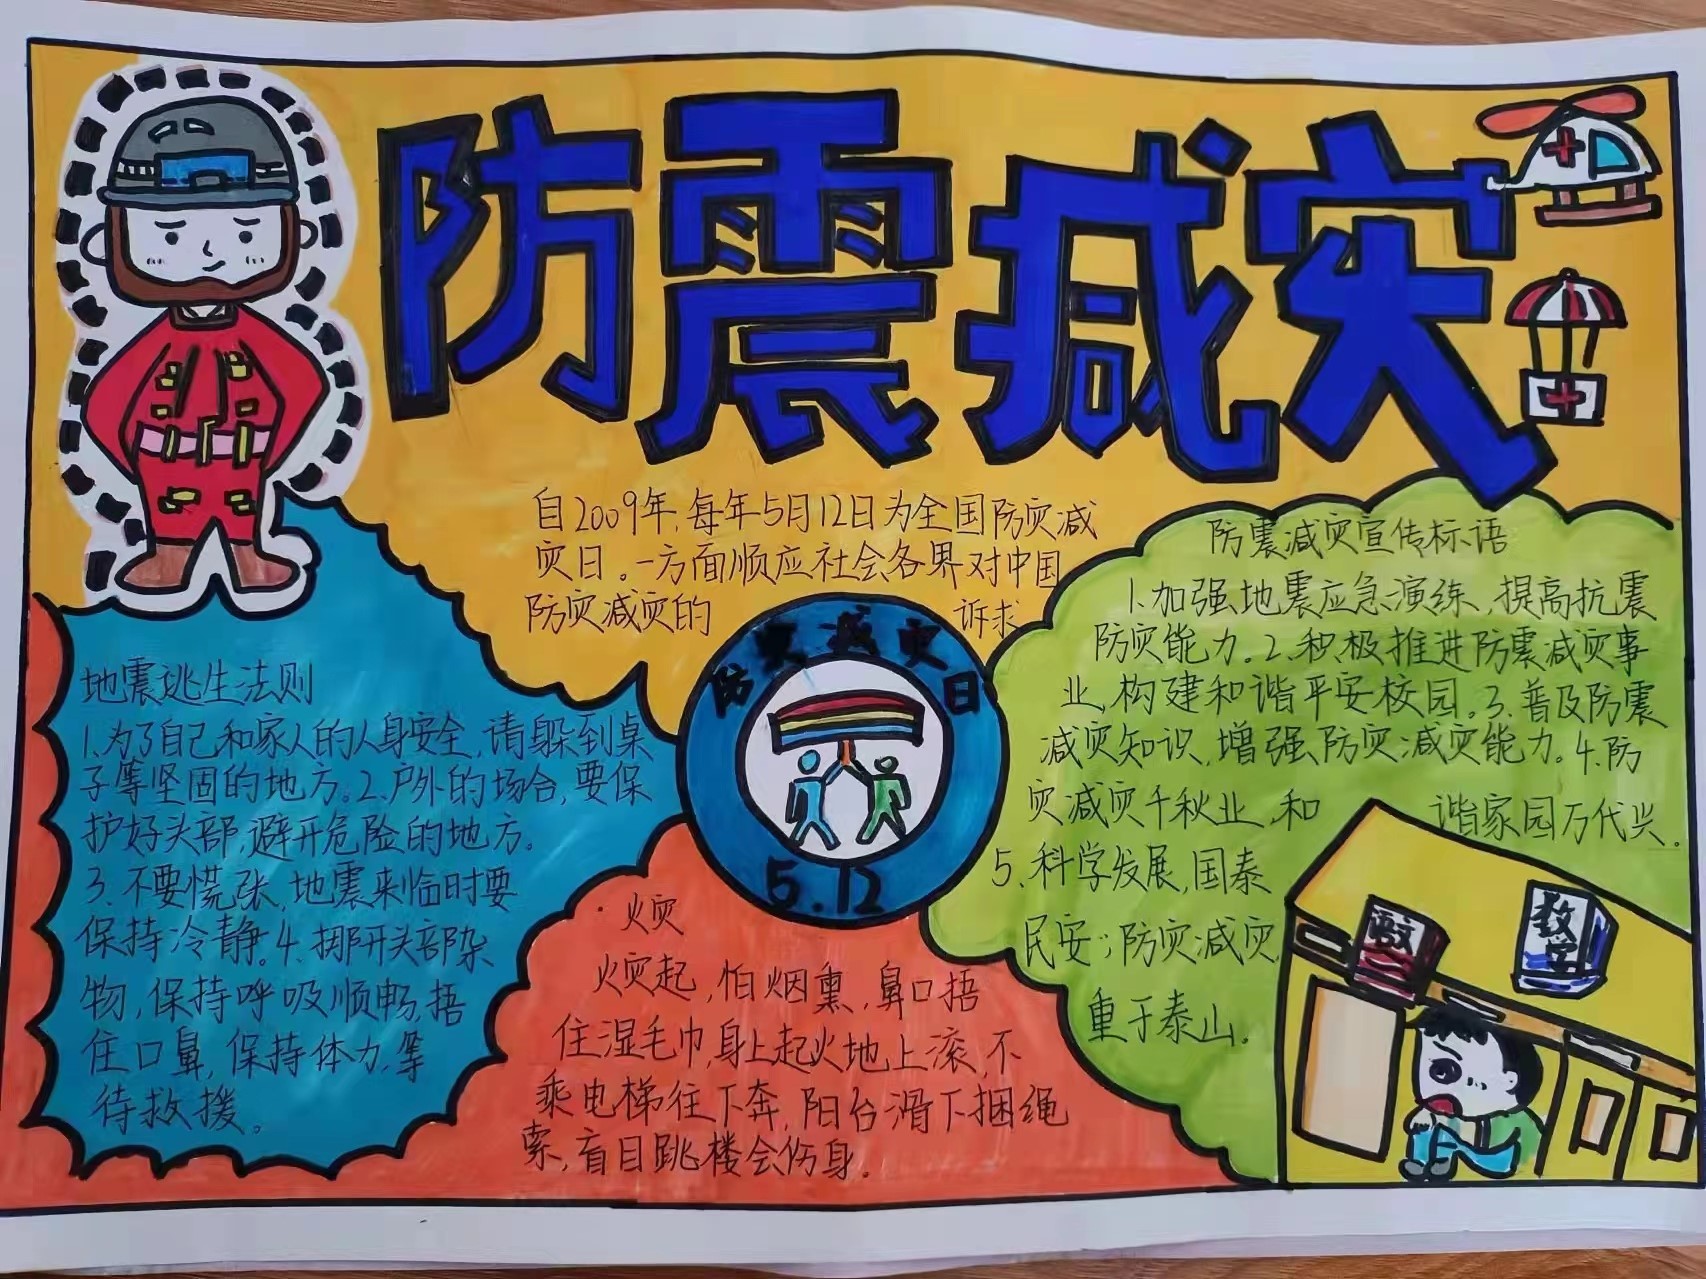 防震减灾
自2009年,每年5月12日为全国防灾减
灾日。一方面顺应社会各界对中国
防灾减灾的 诉求
防灾减灾日
5.12
地震逃生法则
1.为了自己和家人的人身安全,请躲到桌
子等坚固的地方。2.户外的场合,要保
护好头部,避开危险的地方。
3.不要慌张,地震来临时要
保持冷静。4.挪开头部杂
物,保持呼吸顺畅,捂
住口鼻,保持体力,等
待救援。
·火灾
火灾起,怕烟熏,鼻口捂
住湿毛巾,身上起火地上滚,不
乘电梯往下奔,阳台滑下捆绳
索,盲目跳楼会伤身.
防震减灾宣传标语
1.加强地震应急演练,提高抗震
防灾能力。2.积极推进防震减灾事
业,构建和谐平安校园。3.普及防震
减灾知识,增强防灾减灾能力。4.防
灾减灾千秋业,和 谐家园万代兴.
5.科学发展,国泰
民安;防灾减灾
重于泰山.
语文
数学